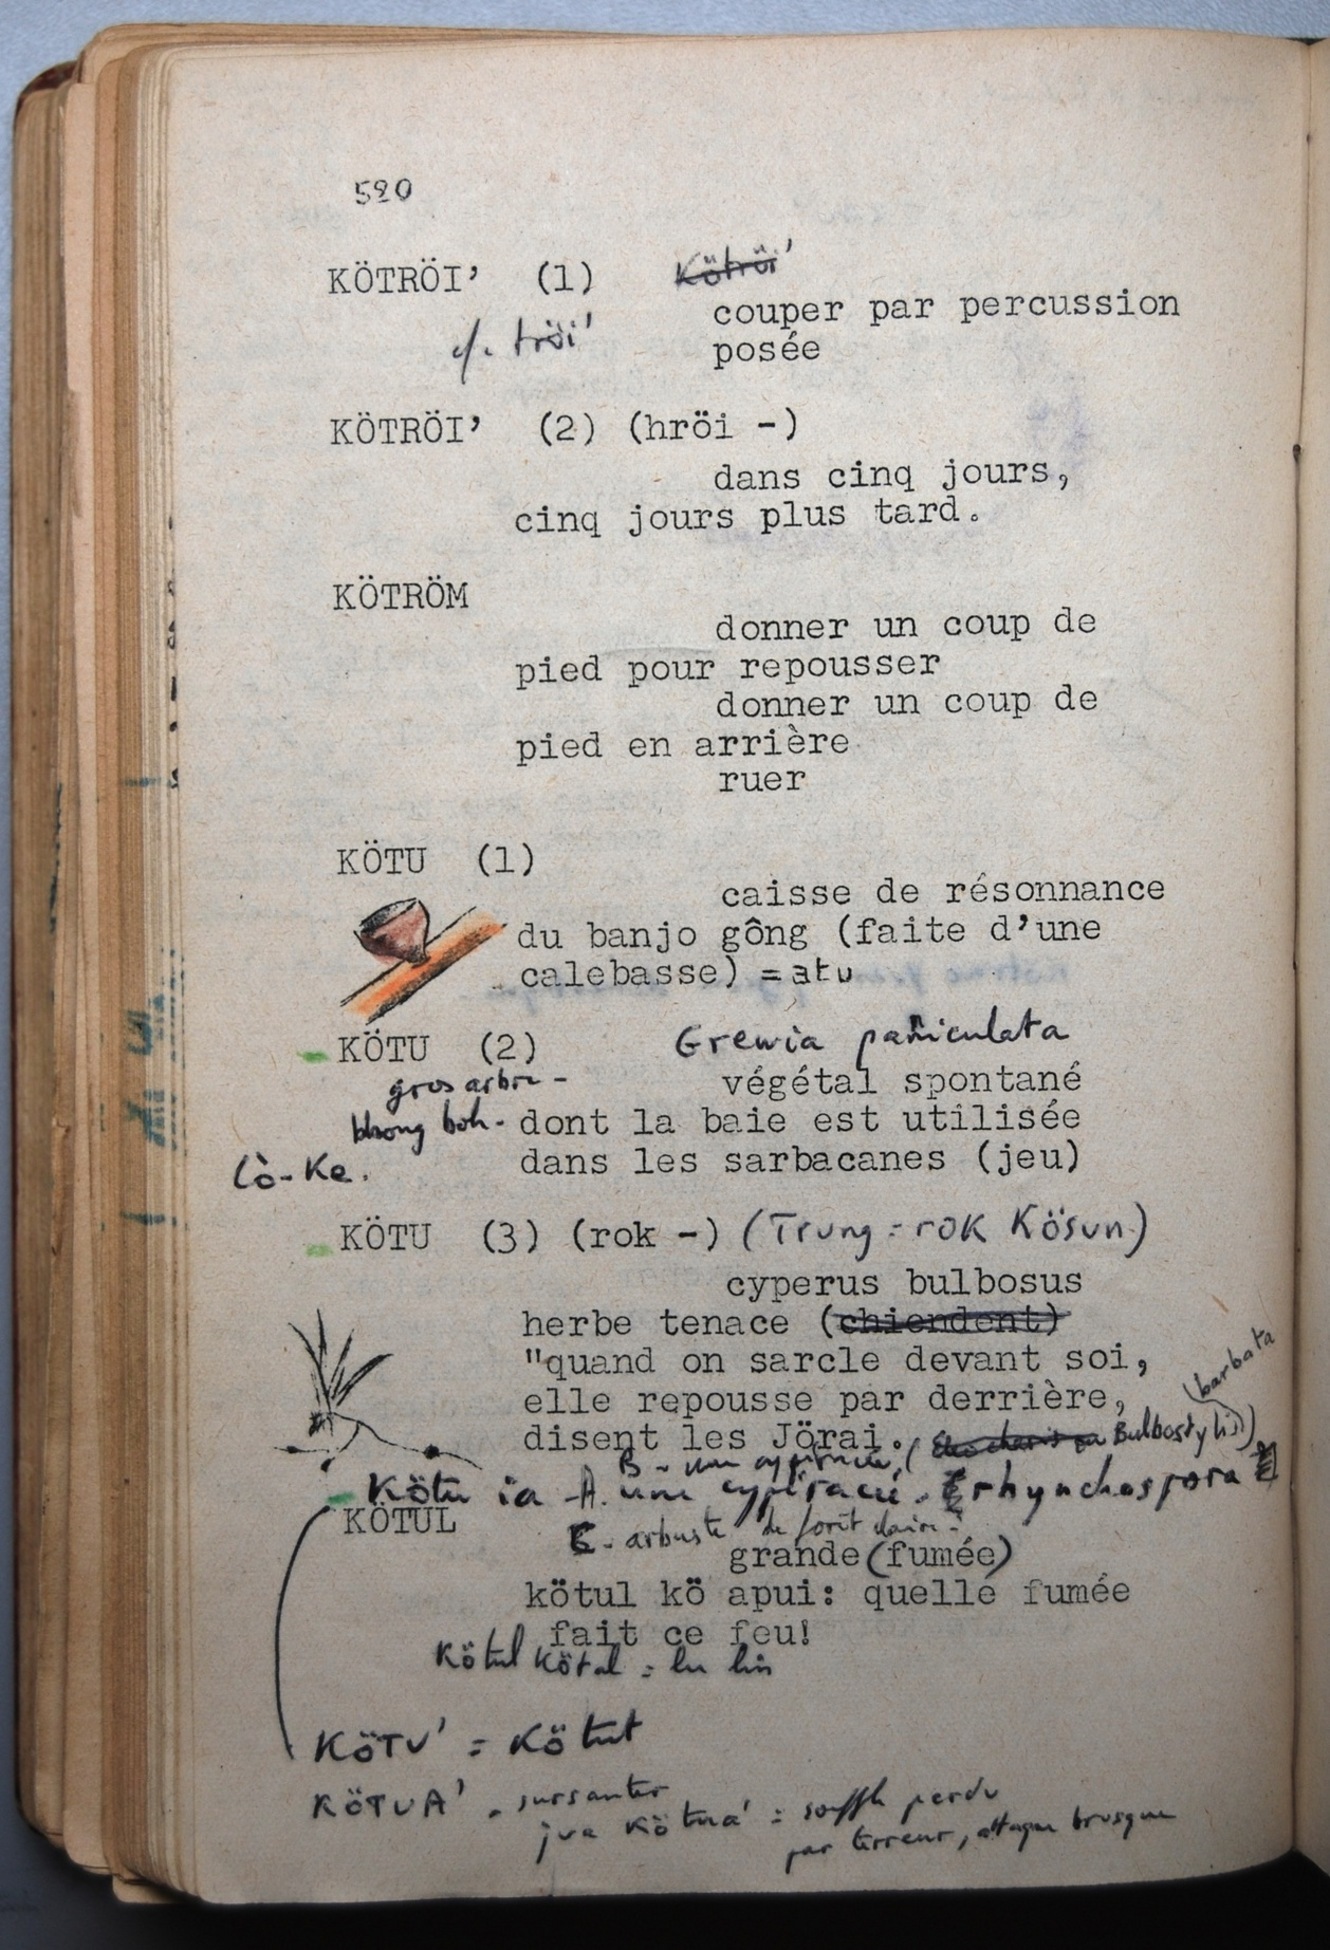 520
KÖTRÖI' (1) Kötröi'
couper par percussion
cf. tröi' posée
KÖTRÖI' (2) (hröi -)
dans cinq jours,
cinq jours plus tard.
KÖTRÖM
donner un coup de
pied pour repousser
donner un coup de
pied en arrière
ruer
KÖTU (1)
caisse de résonnance
du banjo gông (faite d'une
calebasse) = atu
KÖTU (2) Grewia paniculata
gros arbre - végétal spontané
boh - dont la baie est utilisée
lò-Ke. dans les sarbacanes (jeu)
KÖTU (3) (rok -) (Trung = rok Kösun)
cyperus bulbosus
herbe tenace (chiendent)
"quand on sarcle devant soi,
elle repousse par derrière,
(barbata
disent les Jörai. ( Bulbostylis)
B - une cypéracée
Kötu ia - A. une cypéracée. rhynchospora
KÖTUL
C - arbuste de forêt claire.
grande (fumée)
kötul kö apui: quelle fumée
fait ce feu!
Kötul Kötal =
KÖTU' = Kötut
KÖTUA' - sursauter
jua kötua' = souffle perdu
par terreur, attaque brusque